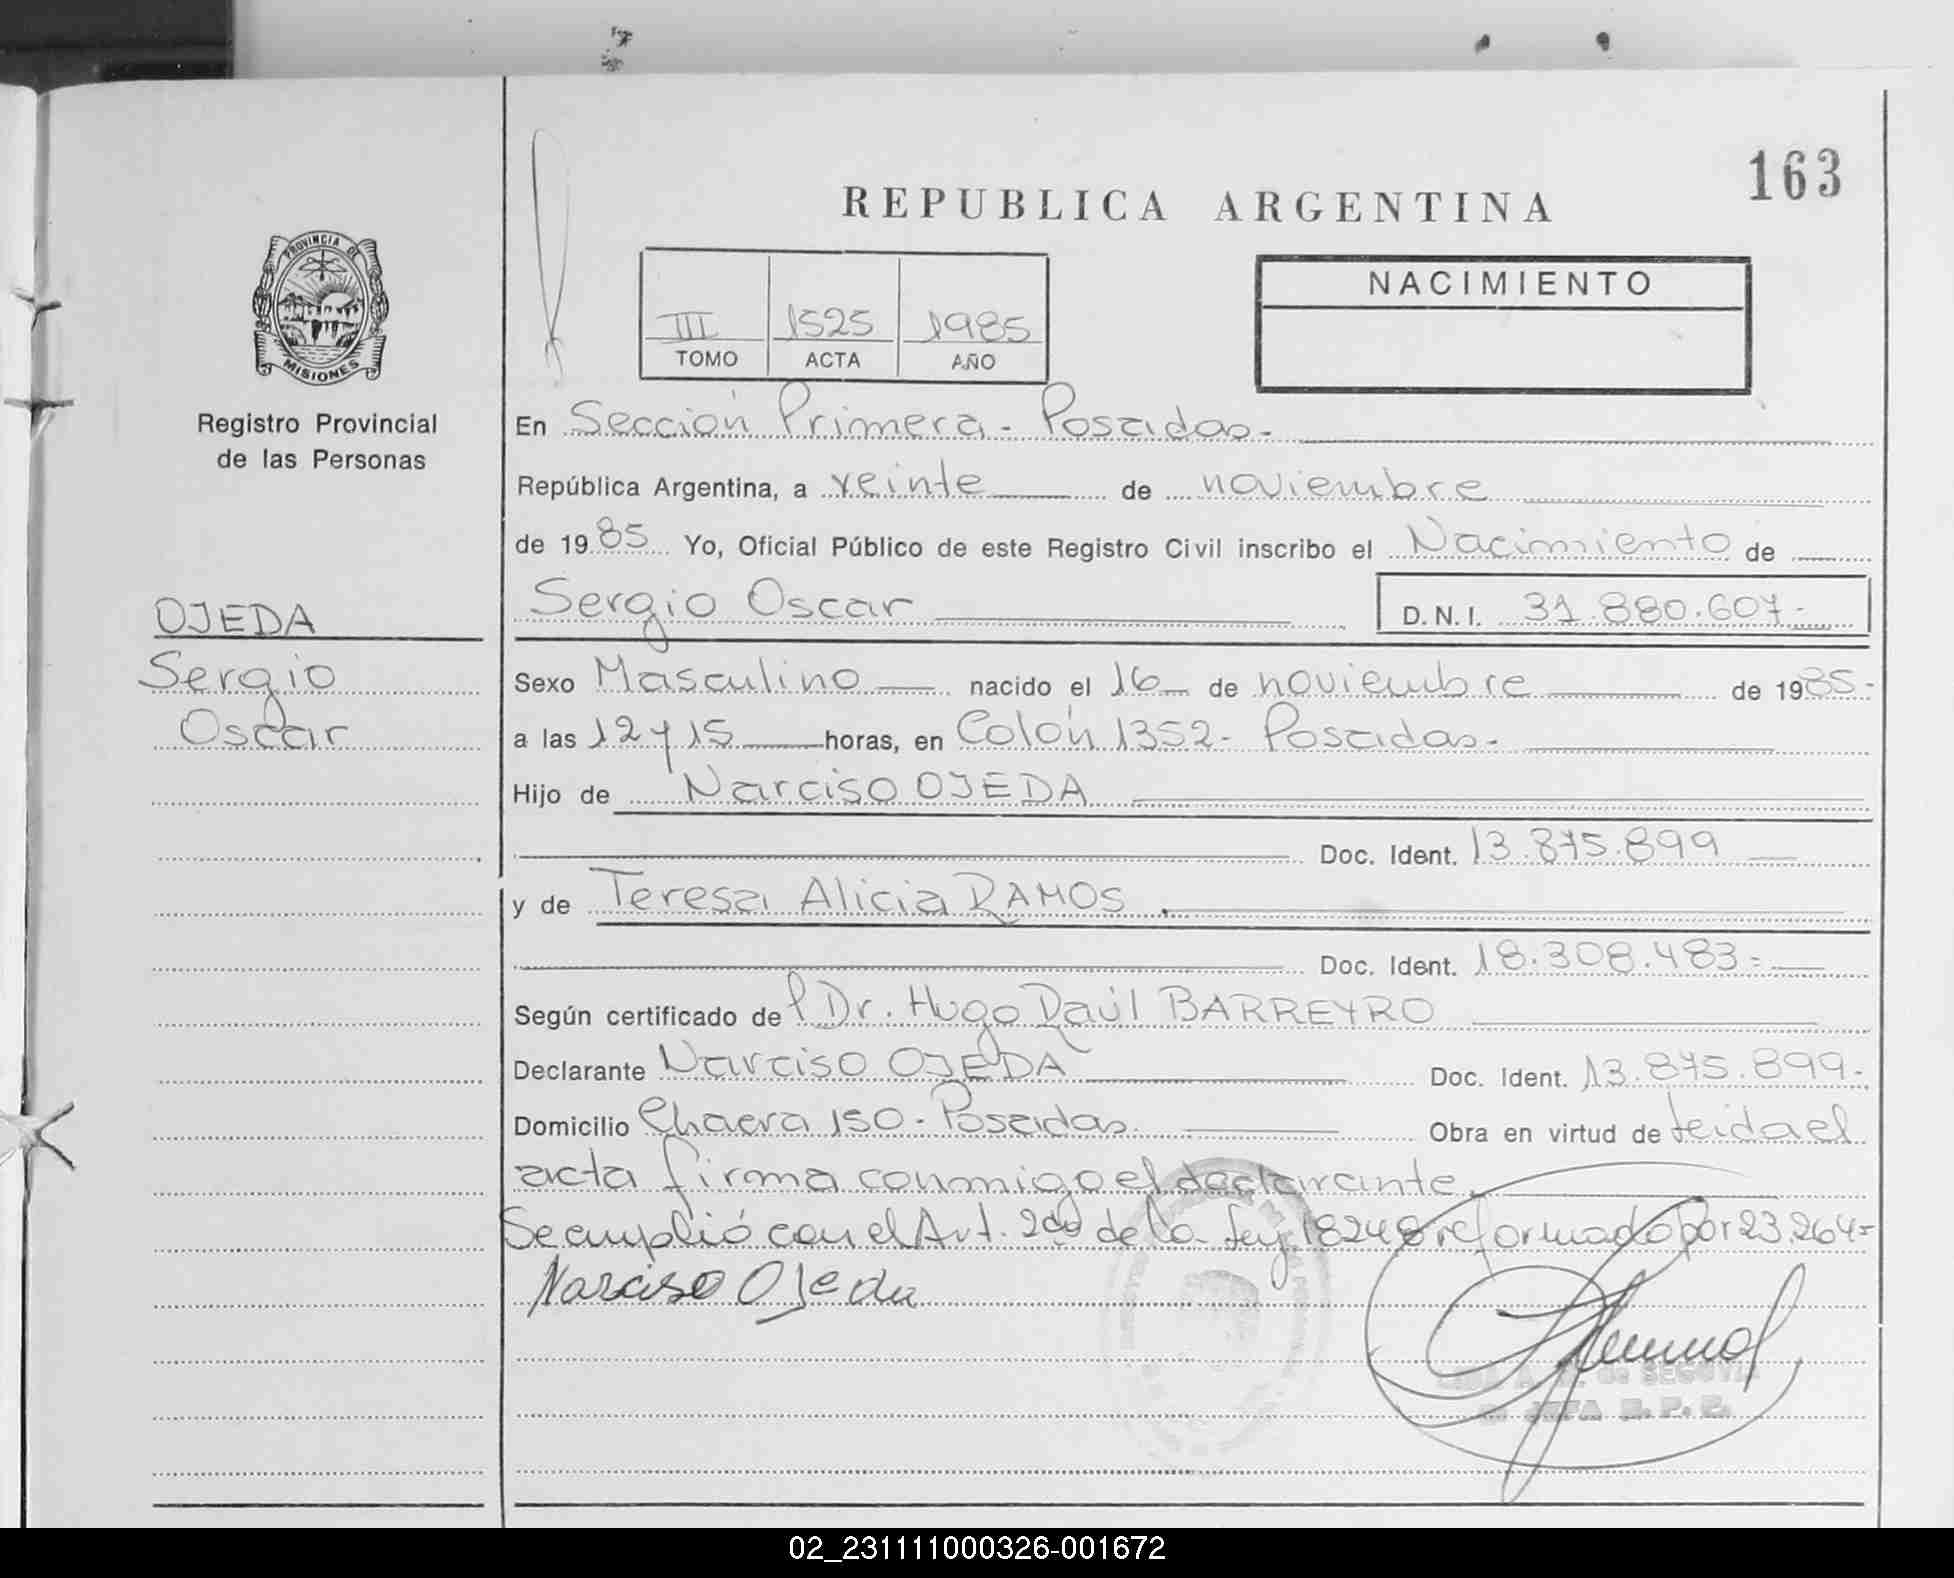 163
REPUBLICA ARGENTINA
PROVINCIA DE
MISIONES
Registro Provincial
de las Personas
III 1525 1985
TOMO ACTA AÑO
NACIMIENTO
En Sección Primera - Posadas -
República Argentina, a veinte de noviembre
de 1985 Yo, Oficial Público de este Registro Civil inscribo el Nacimiento de
Sergio Oscar D.N.I. 31.880.607.-
OJEDA
Sergio
Oscar
Sexo Masculino nacido el 16 de noviembre de 1985-
a las 12 y 15 horas, en Colón 1352- Posadas-
Hijo de Narciso OJEDA
Doc. Ident. 13.875.899
y de Teresa Alicia RAMOS
Doc. Ident. 18.308.483=
Según certificado del Dr. Hugo Raúl BARREYRO
Declarante Narciso OJEDA Doc. Ident. 13.875.899-
Domicilio Chacra 150 - Posadas Obra en virtud de leida el
acta firma conmigo el declarante
Se cumplió con el Art. 2do de la Ley 18248 reformado por 23.264=
Narciso Ojeda
de SEGOVIA
JEFA R. P. P.
02_231111000326-001672